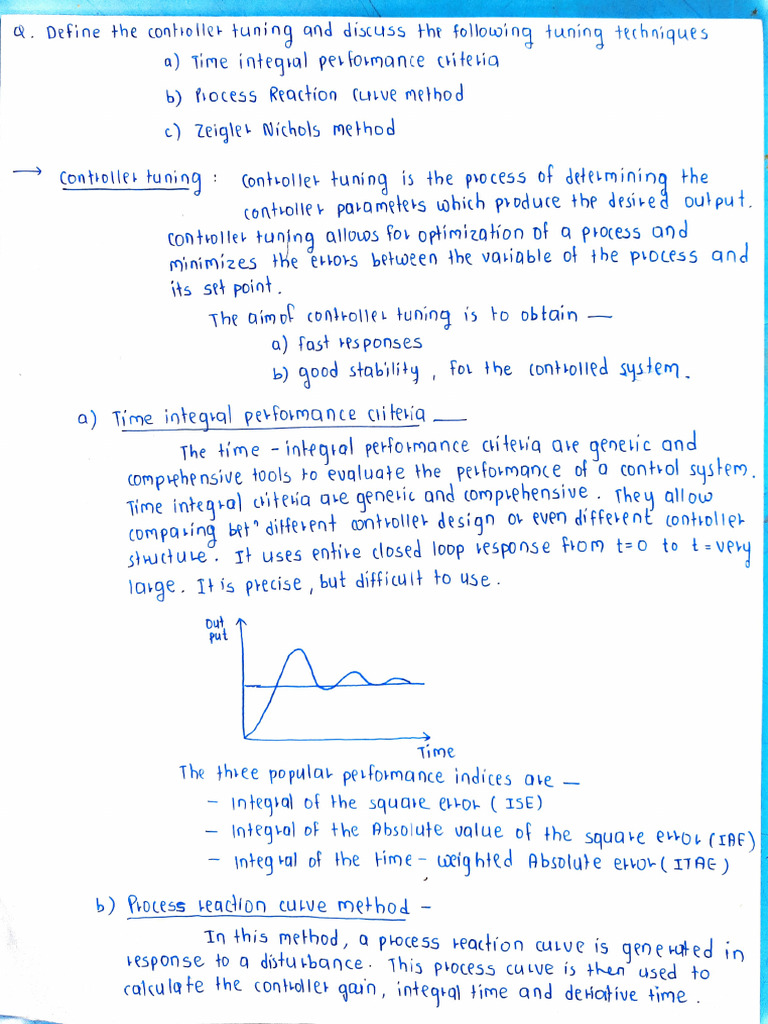 Q. Define the controller tuning and discuss the following tuning techniques
a) Time integral performance criteria
b) Process Reaction curve method
c) Zeigler Nichols method
→ Controller tuning : Controller tuning is the process of determining the
controller parameters which produce the desired output.
Controller tuning allows for optimization of a process and
minimizes the errors between the variable of the process and
its set point.
The aim of controller tuning is to obtain —
a) fast responses
b) good stability, for the controlled system.
a) Time integral performance criteria —
The time - integral performance criteria are generic and
comprehensive tools to evaluate the performance of a control system.
Time integral criteria are generic and comprehensive. They allow
comparing betⁿ different controller design or even different controller
structure. It uses entire closed loop response from t=0 to t=very
large. It is precise, but difficult to use.
Out
put
Time
The three popular performance indices are —
- Integral of the square error (ISE)
- Integral of the Absolute value of the square error (IAE)
- Integral of the time - weighted Absolute error (ITAE)
b) Process reaction curve method -
In this method, a process reaction curve is generated in
response to a disturbance. This process curve is then used to
calculate the controller gain, integral time and derivative time.